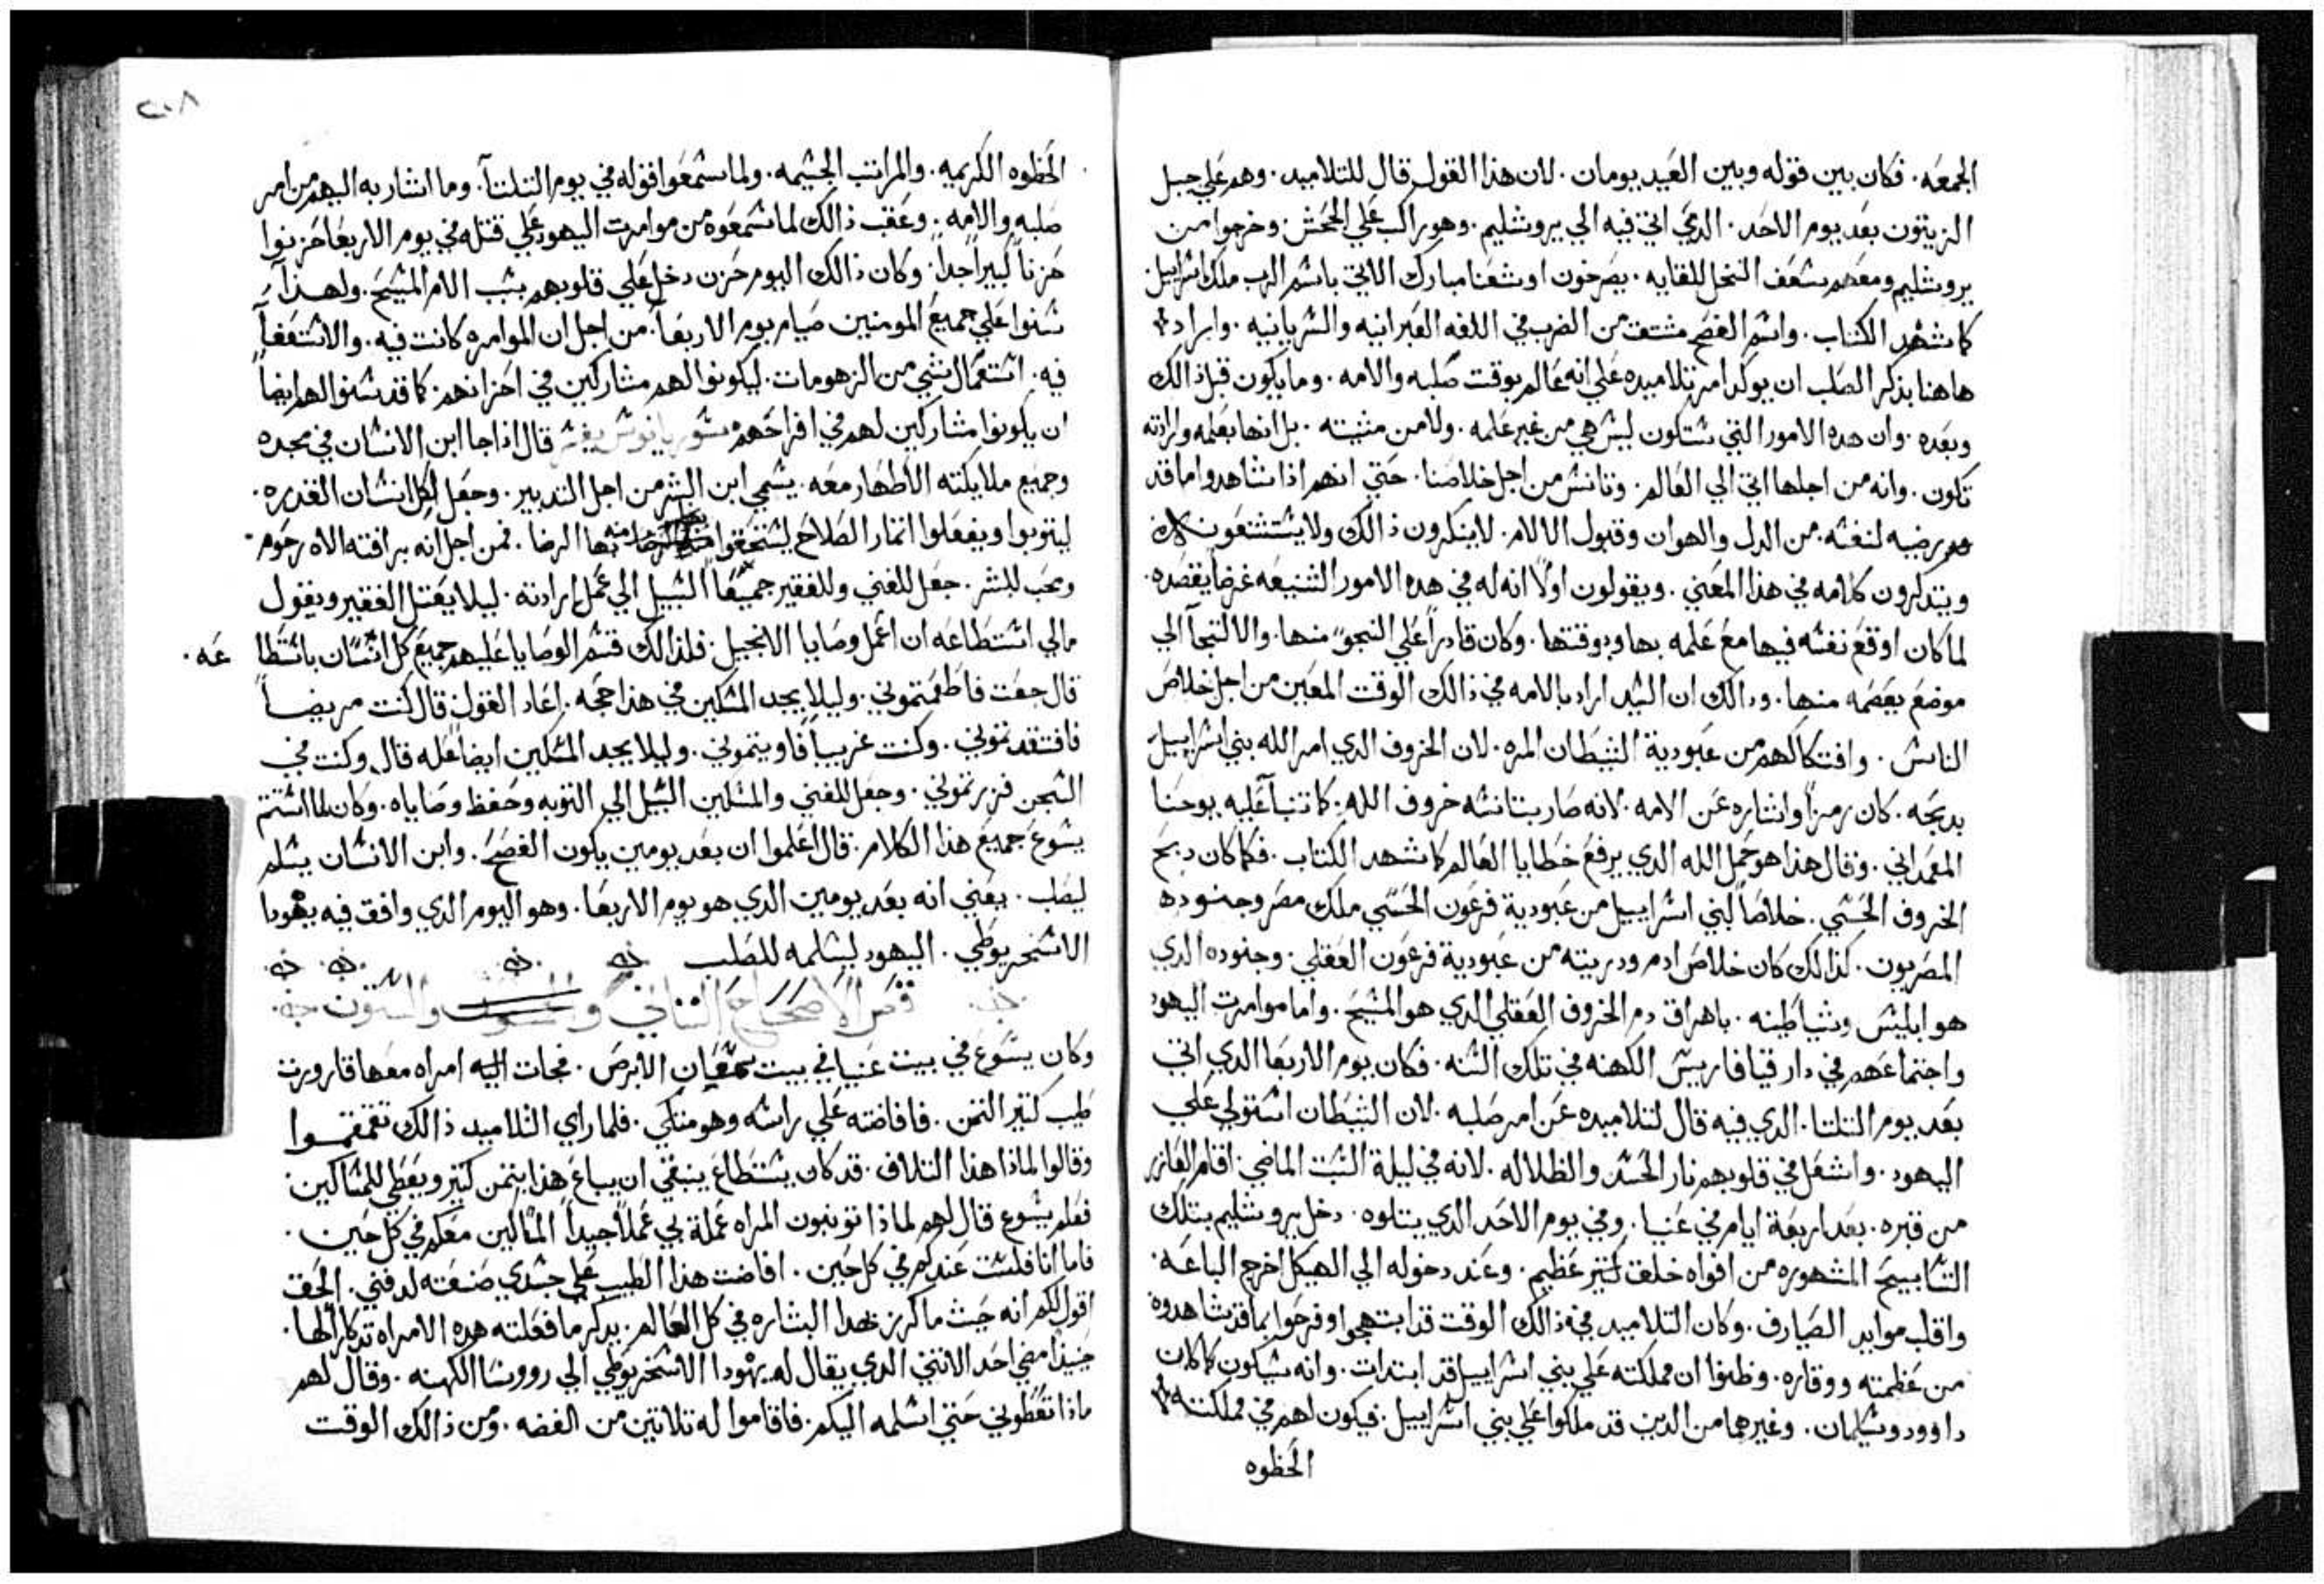 الجمعه. فكان بين قوله وبين العيد يومان. لان هذا القول قال للتلاميد. وهم علي جبل
الزيتون بعد يوم الاحد. الدي اتي فيه الي يروشليم. وهو راكب علي الجحش وخرجوا من
يروشليم ومعهم سعف النخل للقايه. يصرخون اوشعنا مبارك الاتي باسم الرب ملك اسراييل
كما شهد الكتاب. واسم الفصح مشتق من الضرب في اللغه العبرانيه والسريانيه. واراد
هاهنا بذكر الصلب ان يوكد امر تلاميده علي انه عالم بوقت صلبه والامه. وما يكون قبل ذالك
وبعده. وان هده الامور التي ستكون ليس هي من غير علمه. ولا من مثبته. بل انها بعلمه وارادته
تكون. وانه من اجلها اتي الي العالم. وتانس من اجل خلاصنا. حتي انهم اذا شاهدوا ما قد
رضيه لنفسه. من الدل والهوان وقبول الالام. لا ينكرون ذالك ولا يستشنعون
ويتدكرون كلامه في هذا المعني. ويقولون اولاً انه له في هده الامور الشنيعه غرضاً يقصده.
لما كان اوقع نفسه فيها مع علمه بها وبوقتها. وكان قادراً علي النجو منها. والالتجآ الي
موضع يعصمه منها. ودالك ان السيد اراد بالامه في ذالك الوقت المعين من اجل خلاص
الناس. وافتكاكهم من عبودية الشيطان المره. لان الخروف الدي امر الله بني اسراييل
بدبحه. كان رمزاً واشاره عن الامه. لانه صار بتانسه خروف الله. كما تنبآ عليه يوحنا
المعمداني. وقال هذا هو حمل الله الدي يرفع خطايا العالم كما شهد الكتاب. فكما كان دبح
الخروف الحسي. خلاصاً لبني اسراييل من عبودية فرعون الحسي ملك مصر وجنوده
المصريون. كذالك كان خلاص ادم ودريته من عبودية فرعون العقلي. وجنوده الدي
هو ابليس وشياطينه. باهراق دم الخروف العقلي الدي هو المسيح. واما موامرت اليهود
واجتماعهم في دار قيافا رييس الكهنه في تلك السنه. فكان يوم الاربعا الدي اتي
بعد يوم الثلتا. الدي فيه قال لتلاميده عن امر صلبه. لان الشيطان استولي علي
اليهود. واشعل في قلوبهم نار الحسد والظلاله. لانه في ليلة السبت الماضي. اقام العازر
من قبره. بعد اربعة ايام في عنيا. وفي يوم الاحد الدي يتلوه. دخل يروشليم بتلك
التسابيح المشهوره من افواه خلق كتير عظيم. وعند دخوله الي الهيكل اخرج الباعه.
واقلب موايد الصيارف. وكان التلاميد في ذالك الوقت قد ابتهجوا وفرحوا بما قد شاهدوه
من عظمته ووقاره. وظنوا ان مملكته علي بني اسراييل قد ابتدات. وانه سيكون كما كان
داوود وسليمان. وغيرهما من الدين قد ملكوا علي بني اسراييل. فيكون لهم في مملكته
الحظوه
٢٠٨
الحظوه الكريمه. والمراتب الجسيمه. ولما سمعوا قوله في يوم الثلتآ. وما اشار به اليهم من امر
صلبه والامه. وعقب ذالك لما سمعوه من موامرت اليهود علي قتله في يوم الاربعا حزنوا
حزناً كبيراً جداً. وكان ذالك اليوم حزن دخل علي قلوبهم بسبب الام المسيح. ولهذآ
سنوا علي جميع المومنين صيام يوم الاربعآ. من اجل ان الموامره كانت فيه. والاستعفآ
فيه. استعمال شي من الزهومات. ليكونوا لهم مشاركين في احزانهم. كما قد سنوا لهم ايضاً
ان يكونوا مشاركين لهم في افراحهم قال اذا جا ابن الانسان في مجده
وجميع ملايكته الاطهار معه. يسمي ابن البشر من اجل التدبير. وجعل لكل انسان القدره.
ليتوبوا ويفعلوا اتمار الصلاح ليستحقوا بها الرضا. فمن اجل انه برافته الاه رحوم.
ومحب للبشر. جعل للغني وللفقير جميعاً السبيل الي عمل ارادته. ليلا يعتل الفقير ويقول
مالي استطاعه ان اعمل وصايا الانجيل. فلذالك قسم الوصايا عليهم جميع كل انسان باستطاعه.
قال جعت فاطعمتموني. وليلا يجد المسكين في هذا حجه. اعاد القول قال كنت مريضاً
فافتقدتموني. وكنت غريباً فاويتموني. وليلا يجد المسكين ايضاً عله قال وكنت في
السجن فزرتموني. وجعل للغني والمسكين السبيل الي التوبه وحفظ وصاياه. وكان لما استتم
يسوع جميع هذا الكلام. قال اعلموا ان بعد يومين يكون الفصح. وابن الانسان يسلم
ليصلب. يعني انه بعد يومين الدي هو يوم الاربعا. وهو اليوم الدي وافق فيه يهودا
الاسخريوطي. اليهود ليسلمه للصلب
فص الاصحاح الثاني والستون
وكان يسوع في بيت عنيا في بيت سمعان الابرص. فجات اليه امراه معها قارورت
طيب كتير التمن. فافاضته علي راسه وهو متكي. فلما راي التلاميد ذالك تقمقموا
وقالوا لماذا هذا التلاف. قد كان يستطاع ينبغي ان يباع هذا بتمن كتير ويعطي للمساكين
فعلم يسوع قال لهم لماذا تونبون المراه عملة بي عملاً جيداً المساكين معكم في كل حين.
فاما انا فلست عندكم في كل حين. افاضت هذا الطيب علي جسدي صنعته لدفني. الحق
اقول لكم انه حيث ما كرز بهدا البشاره في كل العالم. يدكر ما فعلته هده الامراه تدكاراً لها.
حينيذ مضي احد الاتني الدي يقال له يهودا الاسخريوطي الي رووسا الكهنه. وقال لهم
ماذا تعطوني حتي اسلمه اليكم. فاقاموا له تلاتين من الفضه. ومن ذالك الوقت